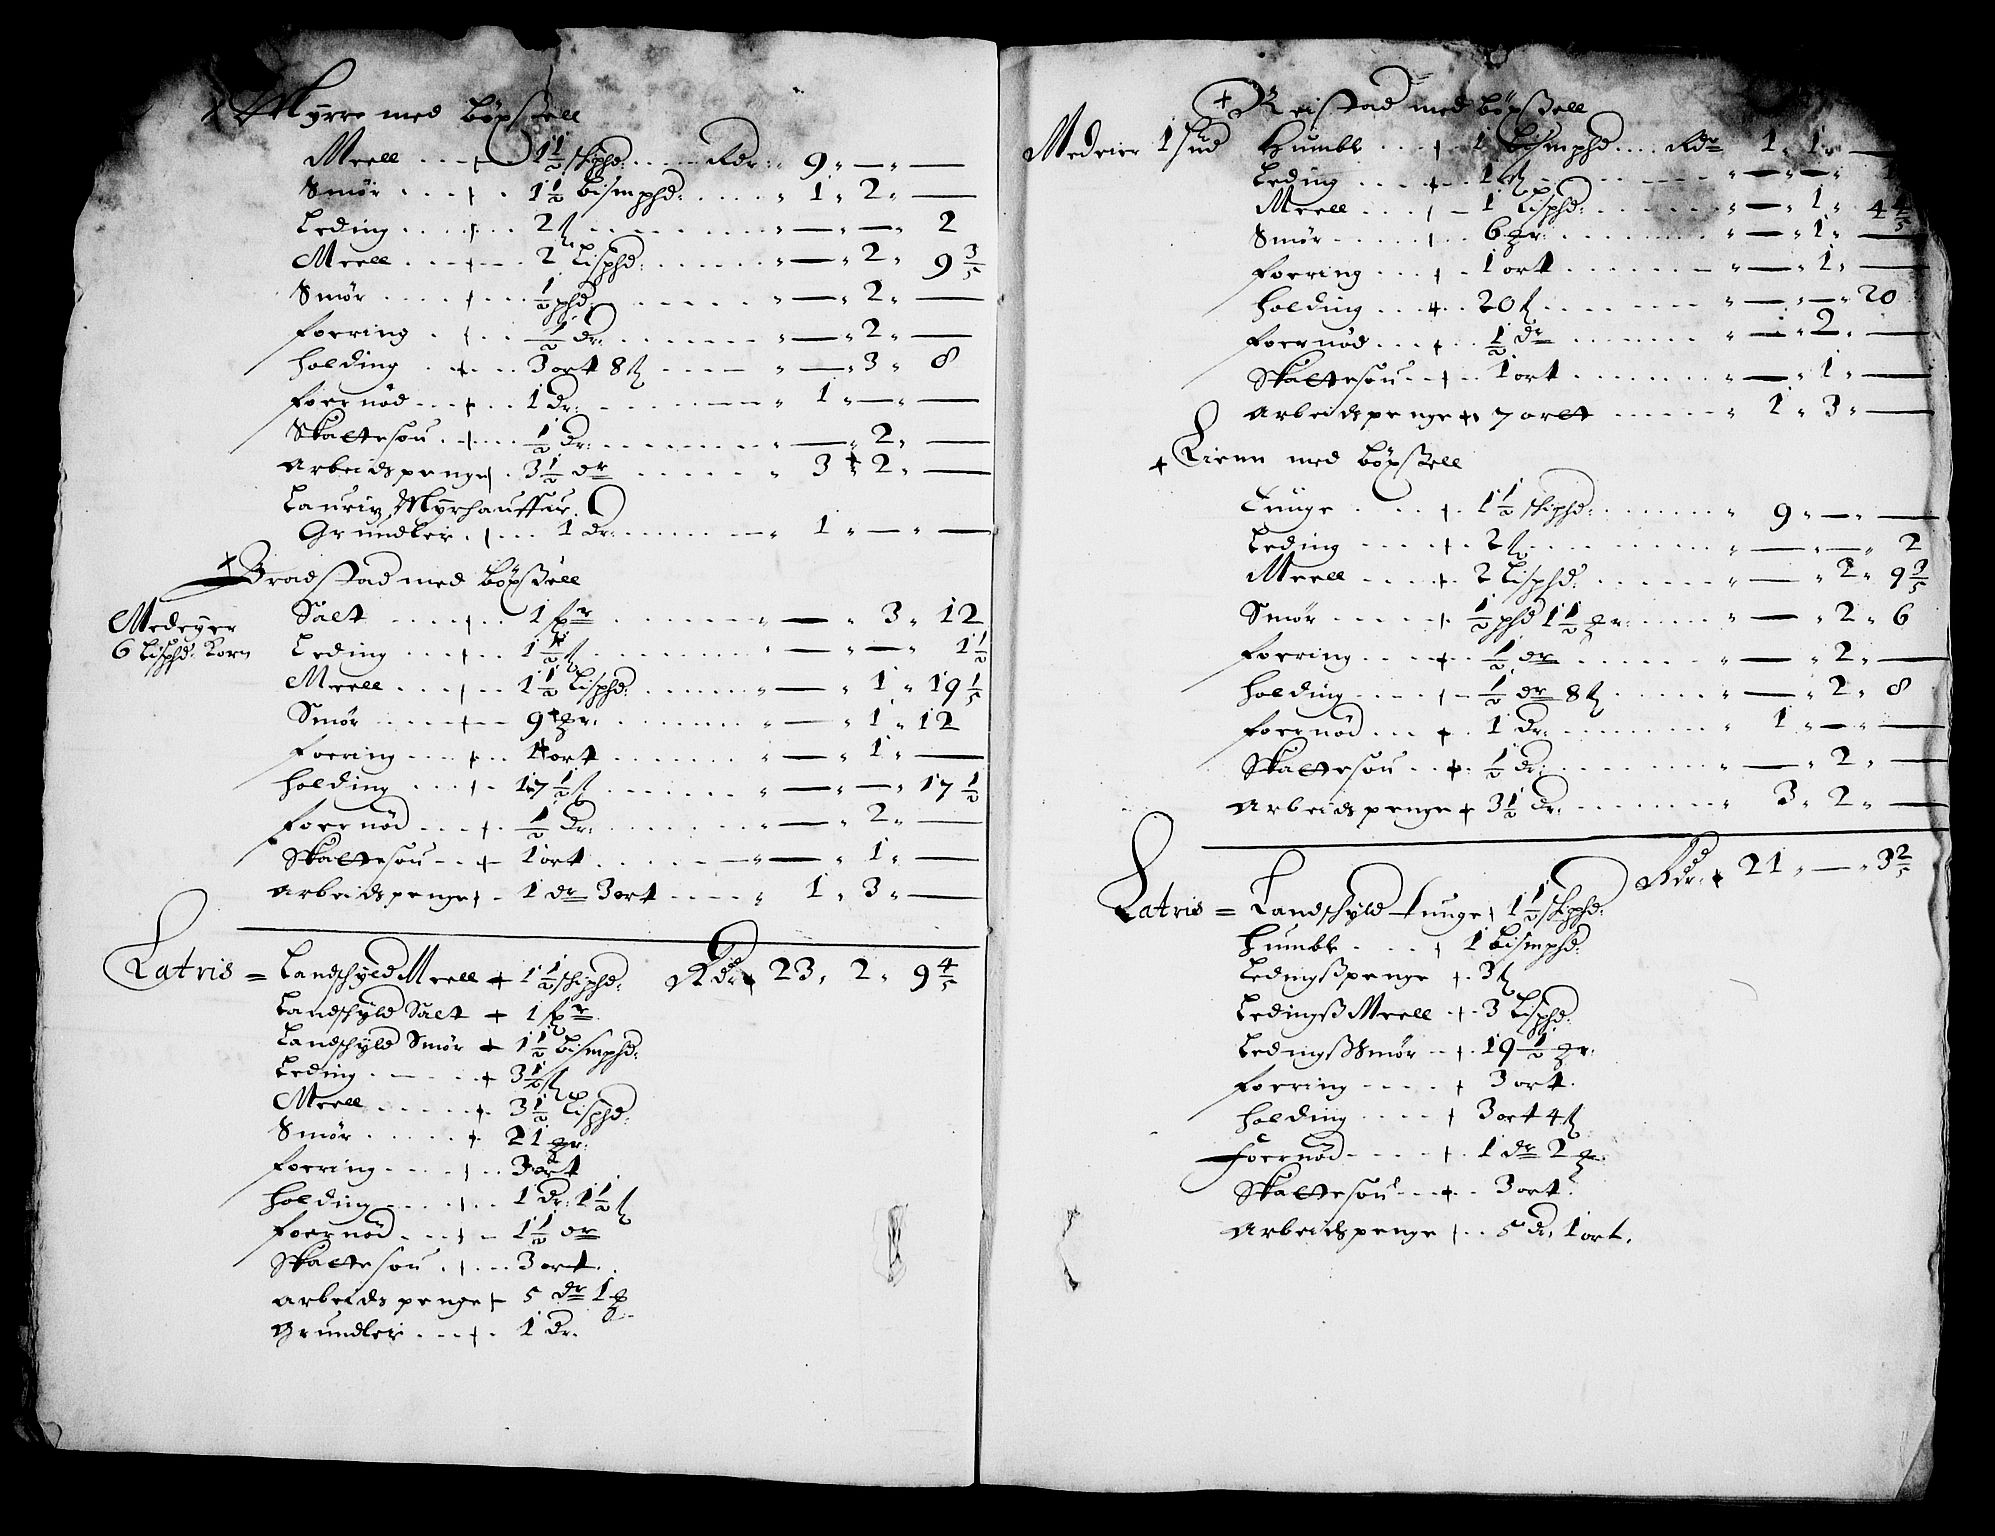 + Myrre med bøxsell
Meell . . . + 1½ skipd: . . . . Rdr: 9 „ — „ —
Smør . . . + . 1½ bismpd: . . . . „ 1 „ 2 „ —
Leding . . . + . . 2 ß . . . . . „ — „ — „ 2
Meell . . . + . . 2 Lispd: . . . . „ — „ 2 „ 9 3/5
Smør . . . . + . . ½ pd: . . . . „ — „ 2 „ —
foering . + . . ½ dr: . . . . „ — „ 2 „ —
holding . + . . 3 ort 8 ß . . . . „ — „ 3 „ 8
foernød . . . + . . 1 dr: . . . . „ 1 „ — „ —
Skattesøu . + . . ½ dr: . . . . „ — „ 2 „ —
Arbeidspenge + . 3½ dr . . . . „ 3 „ 2 „ —
Lauriz Myrhauffur
Grundleie . + . . 1 dr: . . . . „ 1 „ — „ —
+ Bradstad med bøxsell
Medeyer
6 Lispd: Korn
Salt . . . . + . . 1 spr . . . . „ — „ 3 „ 12
Leding . . . + . . 1½ ß . . . . „ — „ — „ 1½
Meell . . . + . . 1½ Lispd: . . . . „ — „ 1 „ 19 1/5
Smør . . . . + . . 9 mr: . . . . „ — „ 1 „ 12
foering . . . + . . 1 ort . . . . „ — „ 1 „ —
holding . . . + . 17½ ß . . . . „ — „ — „ 17½
foernød . . . + . . ½ dr: . . . . „ — „ 2 „ —
Skattesøu . . + . 1 ort . . . . „ — „ 1 „ —
Arbeidspenge + . 1 dr 3 ort . . . . „ 1 „ 3 „ —
Latris = Landschyld Meell + 1½ schipd: Rdr + 23 „ 2 „ 9 4/5
Landschyld Salt + 1 spr
Landschyld Smør + 1½ bismpd:
Leding . . . . + 3½ ß
Meell . . . . + . 3½ Lispd:
Smør . . . . + . 21 mr:
foering . . . . + . . 3 ort
holding . . . + . . 1 dr: 1½ ß
foernød . . . + . 1½ dr
Skattesøu . + . . 3 ort .
Arbeidspenge + 5 dr 1
Grundleie . . . + . 1 dr.
+ Reistad med bøxsell
Medeier 1 hud Humble . . . + . 1 bismpd . . . . Rdr 1 „ 1 „ —
Leding . . . . + . . 1 ß . . . . „ — „ —
Meell . . . + . . 1 Lispd: . . . . „ — „ 1 „ 4 4/5
Smør . . . . + . . 6 mr: . . . . „ — „ 1 „ —
foering . . . + . . 1 ort . . . . „ — „ 1 „ —
holding . . + . . 20 ß . . . . „ — „ — „ 20
foernød . . . + . . ½ dr . . . . „ — „ 2 „ —
Skattesøu . . + . . 1 ort . . . . „ — „ 1 „ —
Arbeidspenge + 7 ortt . . . . „ 1 „ 3 „ —
+ Lienn med bøxsell
Tunge . . . + . 1½ skipd: . . . . „ 9 „ — „ —
Leding . . . . + . 2 ß . . . . „ — „ — „ 2
Meell . . . . + . 2 Lispd: . . . . „ — „ 2 „ 9 3/5
Smør . . . . + . ½ pd 1½ mr: . . . . „ — „ 2 „ 6
foering . . . + . . ½ dr . . . . „ — „ 2 „ —
holding . . . . + . ½ dr 8 ß . . . . „ — „ 2 „ 8
foernød . . . + . . 1 dr: . . . . „ 1 „ — „ —
Skattesøu . . + . ½ dr: . . . . „ — „ 2 „ —
Arbeidspenge + 3½ dr: . . . . „ 3 „ 2 „ —
Rdr: + 21 „ — „ 3 2/5
Latris = Landschyld Tunge + 1½ skipd:
Humble . . . + 1 bismpd:
Ledingspenge + . 3 ß
Ledings Meell . + . 3 Lispd:
Ledings Smør . . + . 19½ mr:
foering . . . . + 3 ort.
holding . . . . + 3 ort 4 ß
Foernød . . . . + . 1 dr 2
Skattesøu . . . + . 3 ort:
Arbeidspenge + . . 5 dr. 1 ort.